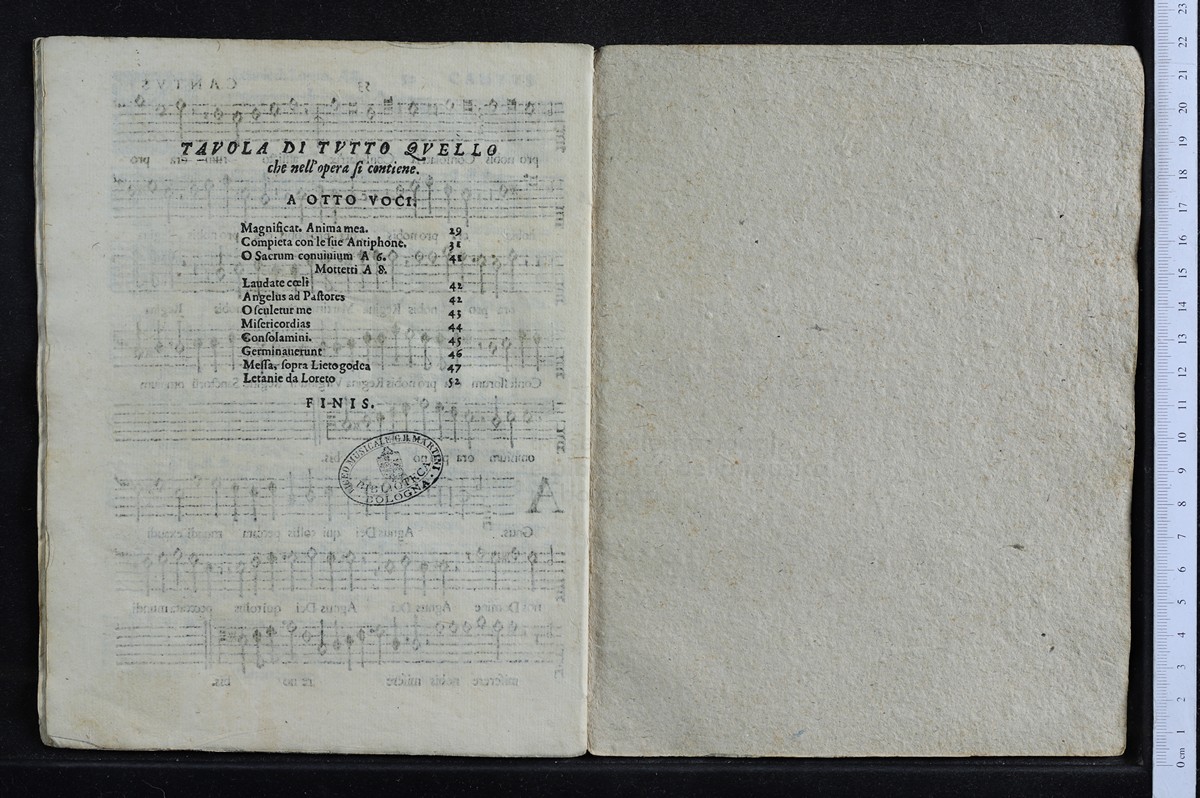 TAVOLA DI TVTTO QVELLO
che nell'opera ſi contiene.
A OTTO VOCI.
Magnificat. Anima mea. 29
Compieta con le ſue Antiphone. 31
O Sacrum conuiuium A 6. 41
Mottetti A 8.
Laudate cœli 42
Angelus ad Paſtores 42
Oſculetur me 43
Miſericordias 44
Conſolamini. 45
Germinauerunt 46
Meſſa, ſopra Lieto godea 47
Letanie da Loreto 52
FINIS.
MUSICALE G.B. MARTINI
BIBLIOTECA
BOLOGNA